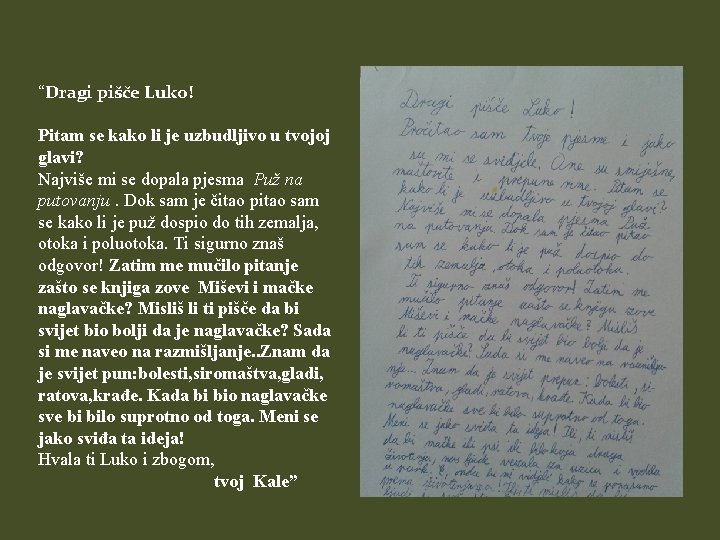 “Dragi pišče Luko!
Pitam se kako li je uzbudljivo u tvojoj
glavi?
Najviše mi se dopala pjesma Puž na
putovanju . Dok sam je čitao pitao sam
se kako li je puž dospio do tih zemalja,
otoka i poluotoka. Ti sigurno znaš
odgovor! Zatim me mučilo pitanje
zašto se knjiga zove Miševi i mačke
naglavačke? Misliš li ti pišče da bi
svijet bio bolji da je naglavačke? Sada
si me naveo na razmišljanje..Znam da
je svijet pun:bolesti,siromaštva,gladi,
ratova,krađe. Kada bi bio naglavačke
sve bi bilo suprotno od toga. Meni se
jako sviđa ta ideja!
Hvala ti Luko i zbogom,
tvoj Kale”
Dragi pišče Luko!
Pročitao sam tvoje pjesme i jako
su mi se svidjele. One su smiješne,
maštovite i prepune rime. Pitam se
kako li je uzbudljivo u tvojoj glavi?
Najviše mi se dopala pjesma Puž
na putovanju. Dok sam je čitao pitao
sam se kako li je puž dospio do
tih zemalja, otoka i poluotoka.
Ti sigurno znaš odgovor! Zatim me
mučilo pitanje zašto se knjiga zove
Miševi i mačke naglavačke? Misliš
li ti pišče da bi svijet bio bolji da je
naglavačke? Sada si me naveo na razmišlja-
nje... Znam da je svijet prepun: bolesti, si-
romaštva, gladi, ratova, krađe. Kada bi bio
naglavačke sve bi bilo suprotno od toga.
Meni se jako sviđa ta ideja! Ili, ti misliš
da bi mačke ili psi ili bilo koja druga
životinja, nas ljude vezala za uzicu i vodila
u park. E, onda bi mi vidjeli kako se ponašamo
prema životinjama!